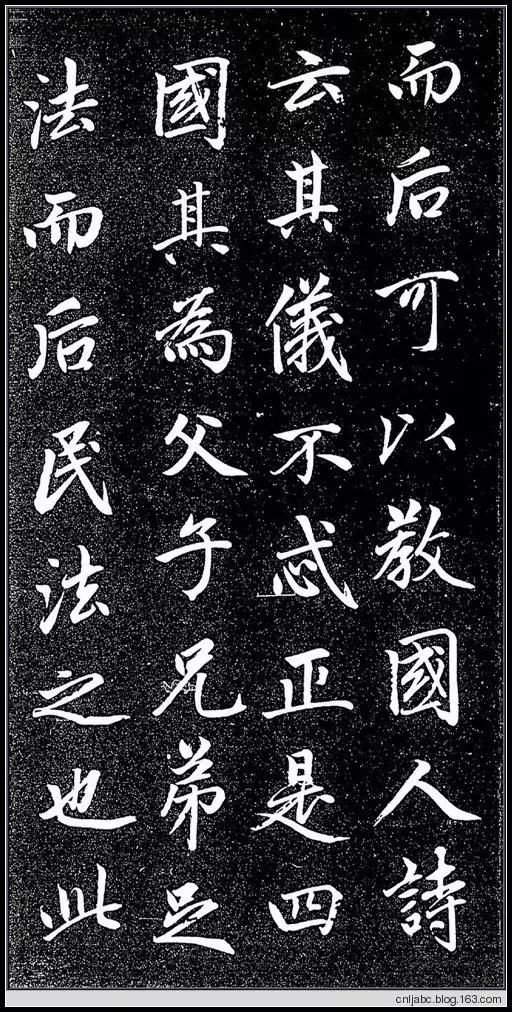 而后可以教國人詩
云其儀不忒正是四
國其為父子兄弟足
法而后民法之也此
cnljabc.blog.163.com